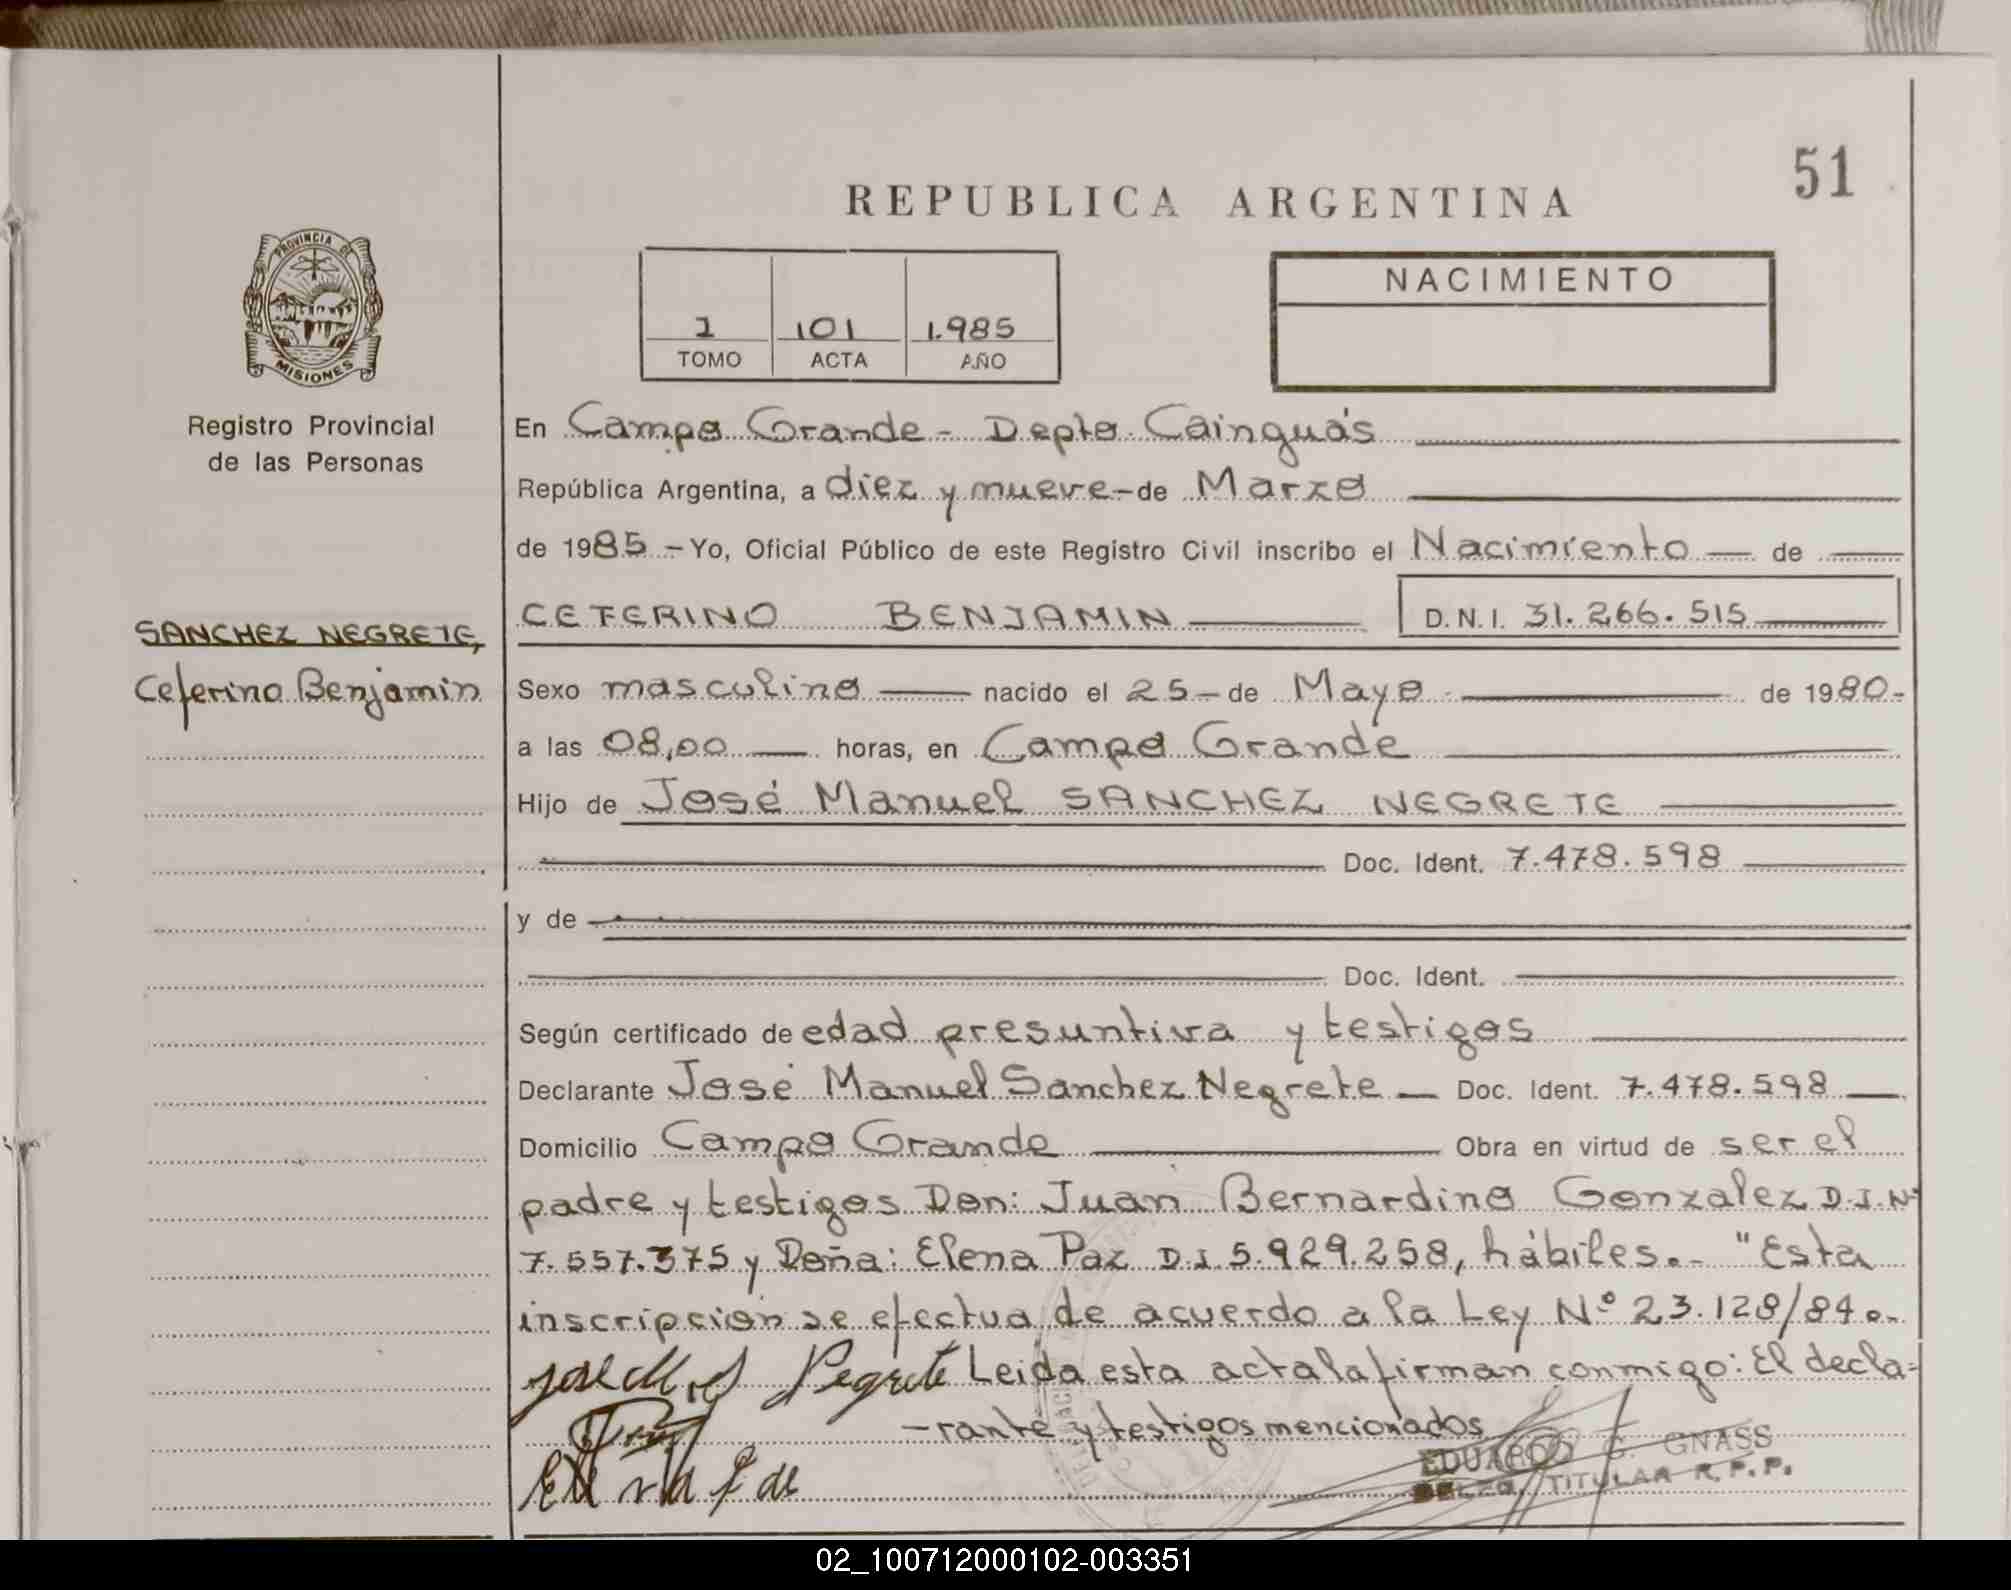 51
REPUBLICA ARGENTINA
PROVINCIA DE
MISIONES
Registro Provincial
de las Personas
1 101 1.985
TOMO ACTA AÑO
NACIMIENTO
En Campo Grande - Depto. Cainguás
República Argentina, a diez y nueve - de Marzo
de 1985 - Yo, Oficial Público de este Registro Civil inscribo el Nacimiento de
CEFERINO BENJAMIN D.N.I. 31.266.515
SANCHEZ NEGRETE,
Ceferino Benjamin
Sexo masculino nacido el 25 - de Mayo de 1980.-
a las 08,00 horas, en Campo Grande
Hijo de José Manuel SANCHEZ NEGRETE
Doc. Ident. 7.478.598
y de
Doc. Ident.
Según certificado de edad presuntiva y testigos
Declarante José Manuel Sanchez Negrete - Doc. Ident. 7.478.598
Domicilio Campo Grande Obra en virtud de ser el
padre y testigos Don: Juan Bernardino Gonzalez D.I.Nº
7.557.375 y Doña: Elena Paz D.I. 5.929.258, hábiles.- "Esta
inscripción se efectua de acuerdo a la Ley Nº 23.128/84.-
Negrete Leida esta acta la firman conmigo: El decla-
-rante y testigos mencionados
EDUARDO G. GNASS
TITULAR R.P.P.
02_100712000102-003351